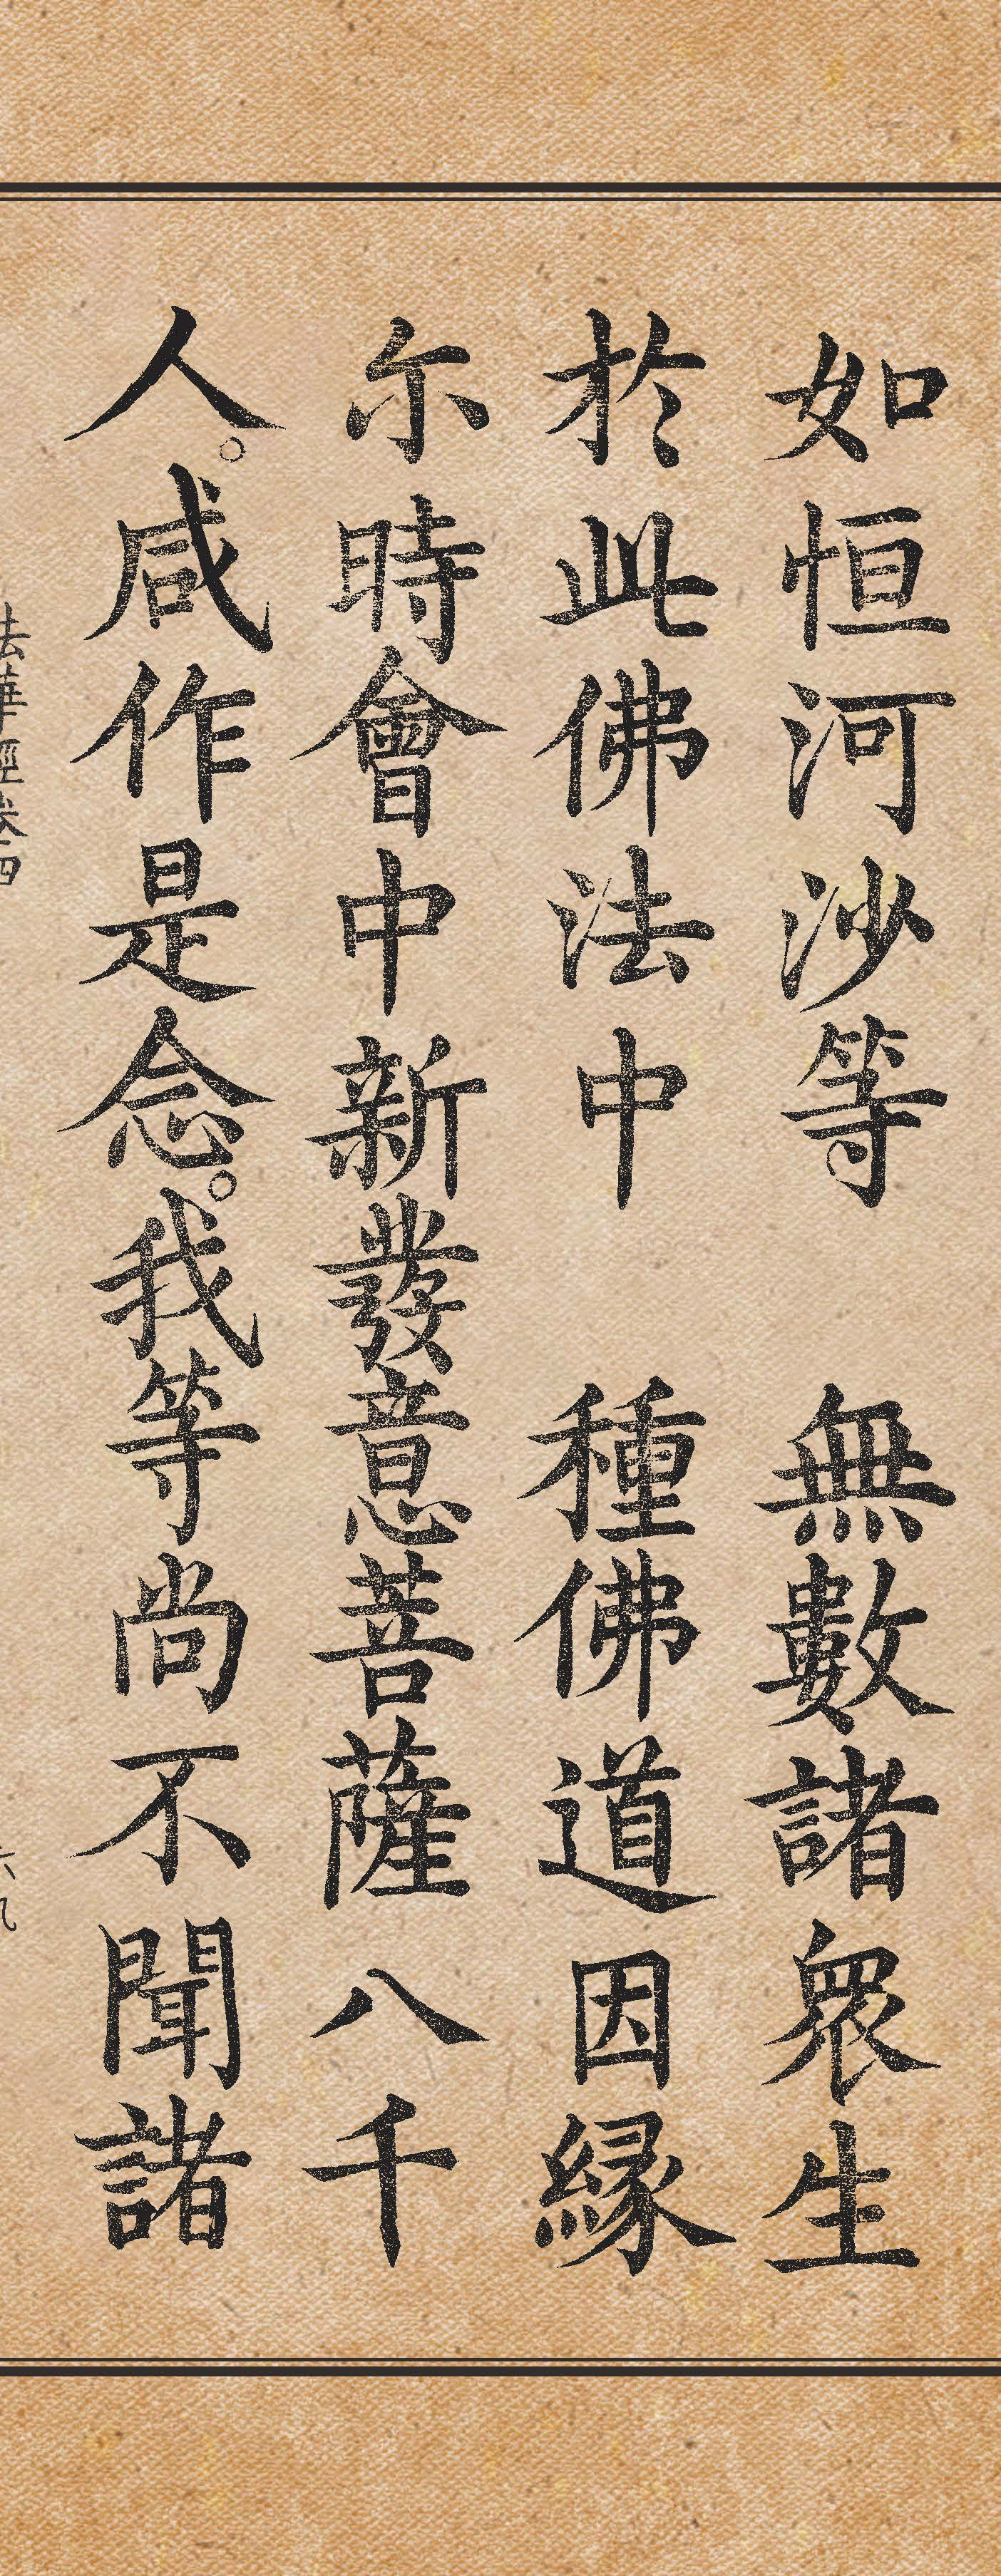 如恒河沙等　無數諸衆生
於此佛法中　種佛道因緣
尒時會中新發意菩薩八千
人。咸作是念。我等尚不聞諸
法華經卷四